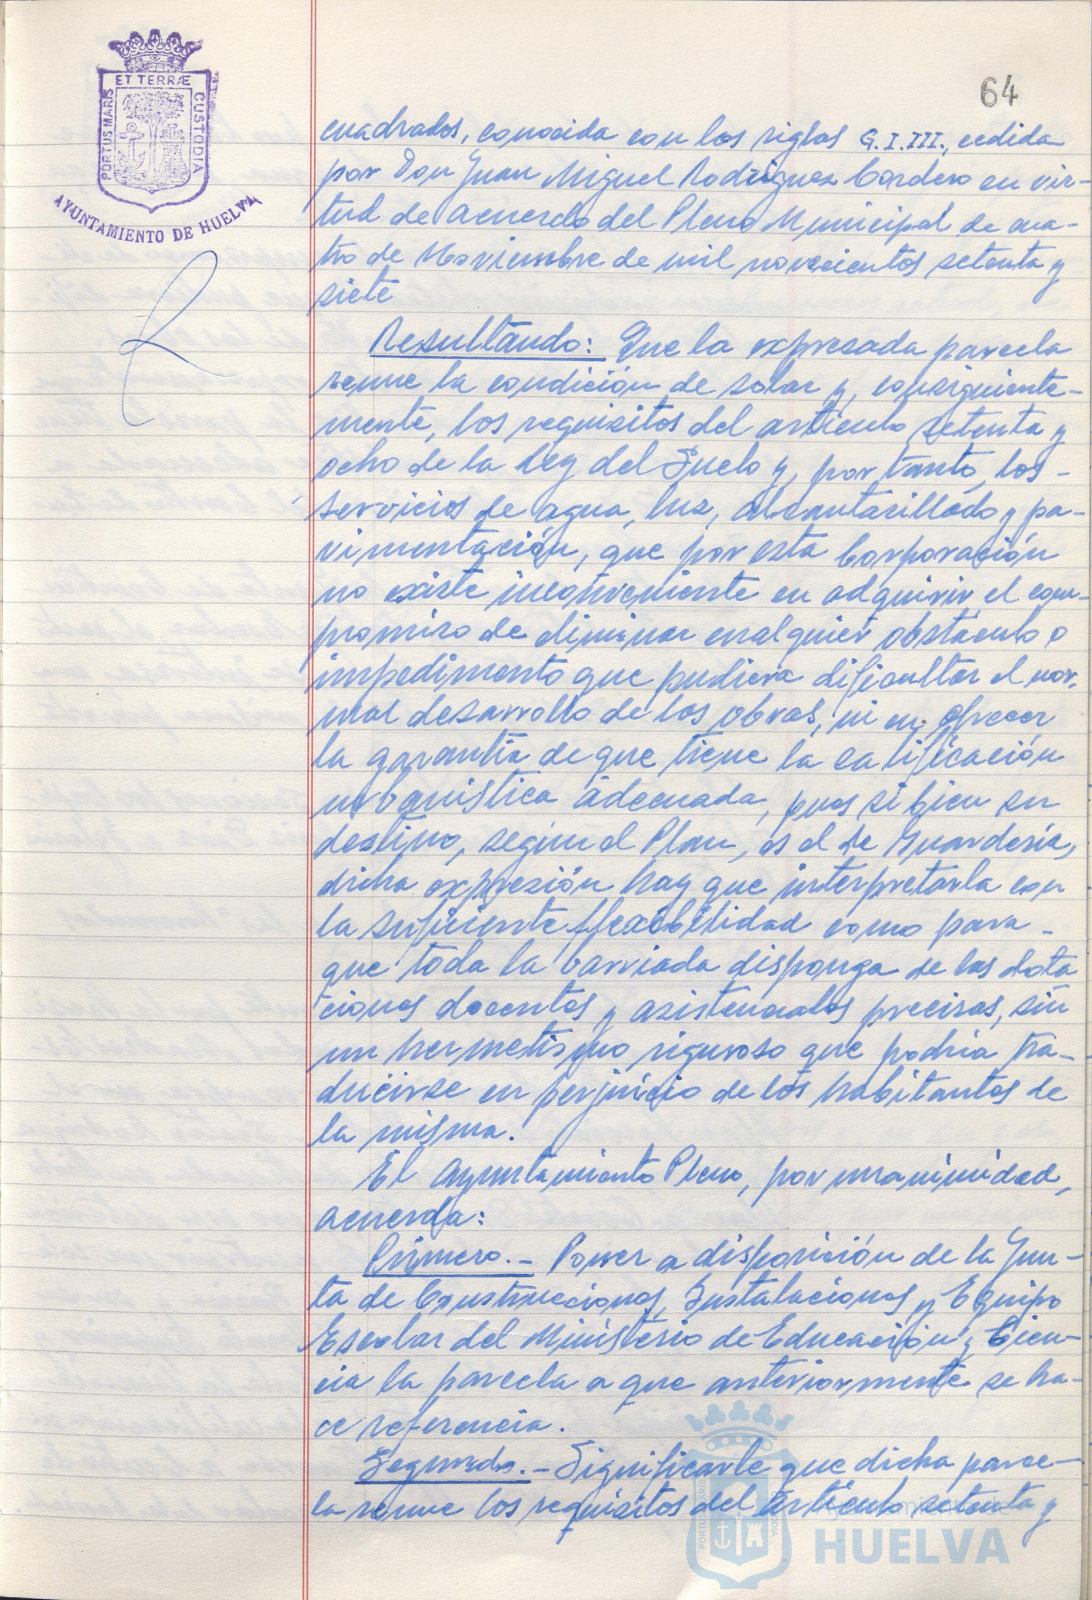 ET TERRÆ
PORTUS MARIS
CUSTODIA
AYUNTAMIENTO DE HUELVA
64
cuadrados, conocida con los siglas G.I.III., cedida
por Don Juan Miguel Rodríguez Cordero en vir-
tud de acuerdo del Pleno Municipal de cua-
tro de Noviembre de mil novecientos setenta y
siete
Resultando: Que la expresada parcela
reune la condición de solar y, consiguiente-
mente, los requisitos del artículo setenta y
ocho de la Ley del Suelo y, por tanto, los-
servicios de agua, luz, alcantarillado y pa-
vimentación, que por esta Corporación
no existe inconveniente en adquirir el com-
promiso de eliminar cualquier obstáculo o
impedimento que pudiera dificultar el nor-
mal desarrollo de los obras, ni en ofrecer
la garantía de que tiene la calificación
urbanística adecuada, pues si bien su
destino, según el Plan, es el de Guardería,
dicha expresión hay que interpretarla con
la suficiente flexibilidad como para -
que toda la barriada disponga de las dota
ciones docentes y asistenciales precisas, sin
un hermetismo riguroso que podría tra-
ducirse en perjuicio de los habitantes de
la misma.
El Ayuntamiento Pleno, por unanimidad,
acuerda:
Primero.- Poner a disposición de la Jun-
ta de Construcciones, Instalaciones y Equipo
Escolar del Ministerio de Educación y Cien-
cia la parcela a que anteriormente se ha-
ce referencia.
Segundo.- Significarle que dicha parce-
la reune los requisitos del artículo setenta y
HUELVA